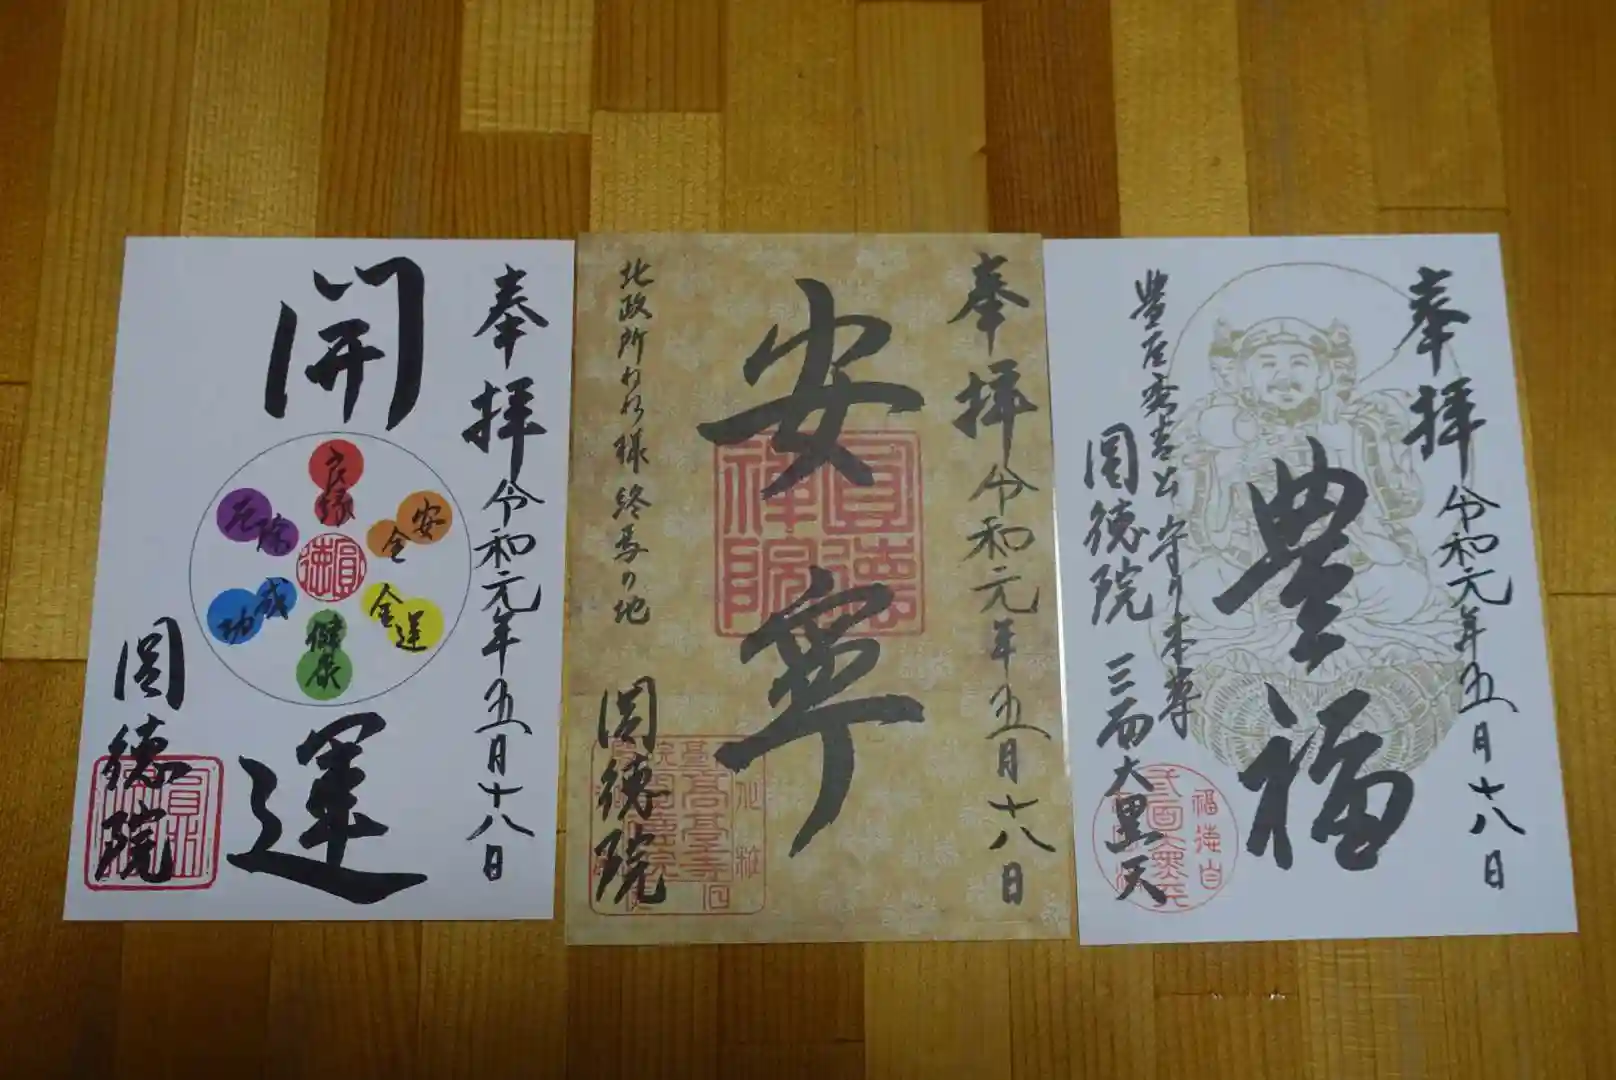 奉拝 令和元年五月十八日
開運
良縁
安全
金運
健康
成功
厄除
圓徳
圓徳院
奉拝 令和元年五月十八日
安寧
圓德禅院
北政所ねね様 終焉の地
圓徳院
奉拝 令和元年五月十八日
豊福
豊臣秀吉公 守り本尊
圓徳院 三面大黒天